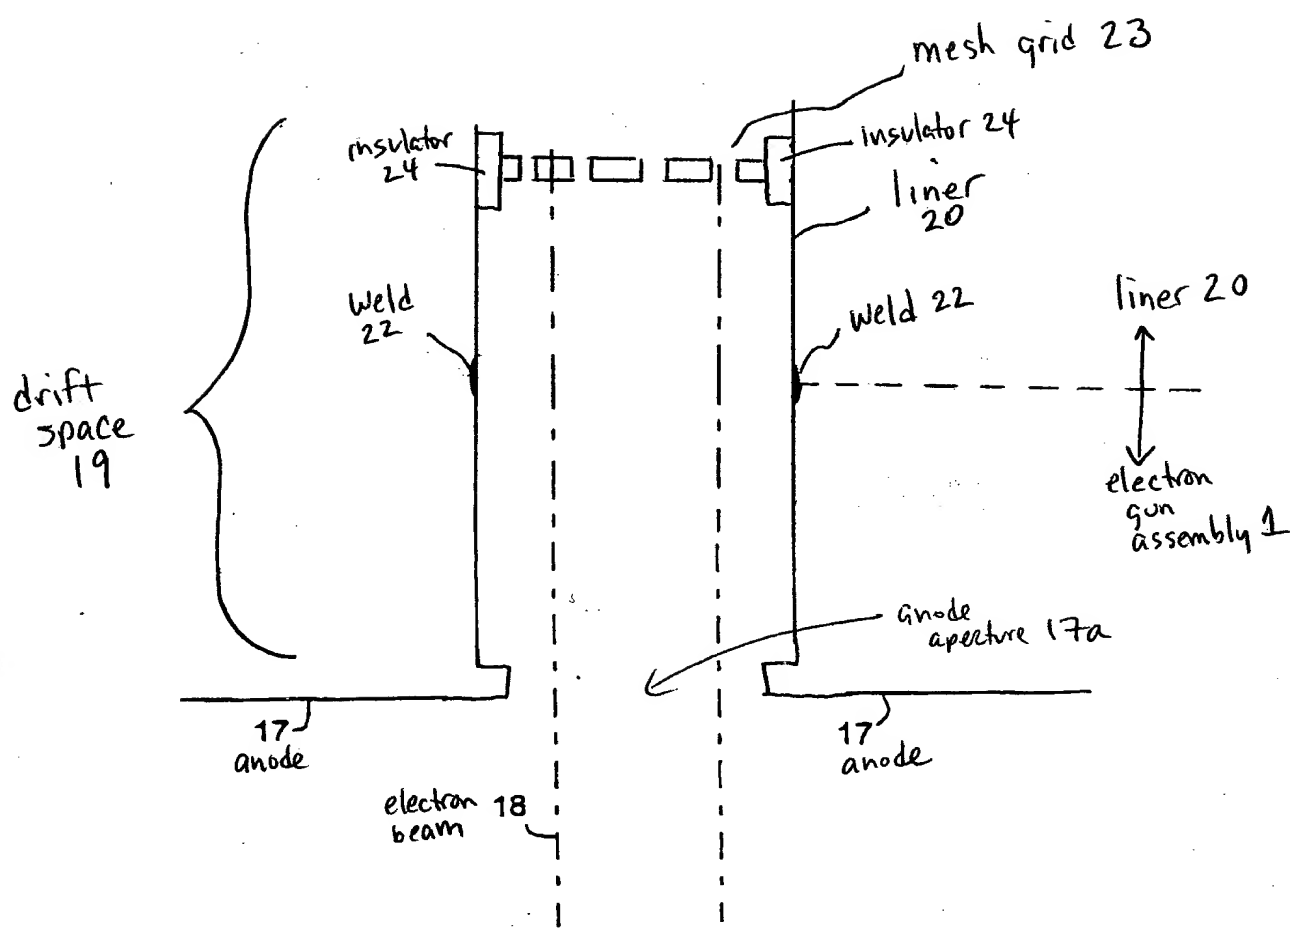 mesh grid 23
insulator
24
insulator 24
liner
20
weld
22
weld 22
liner 20
drift
space
19
electron
gun
assembly 1
anode
aperture 17a
17
anode
17
anode
electron 18
beam